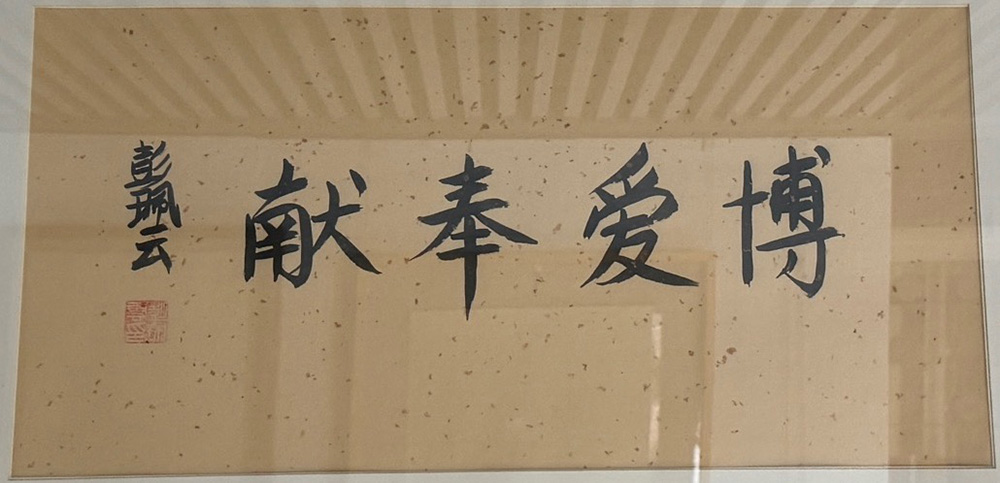 博爱奉献
彭珮云